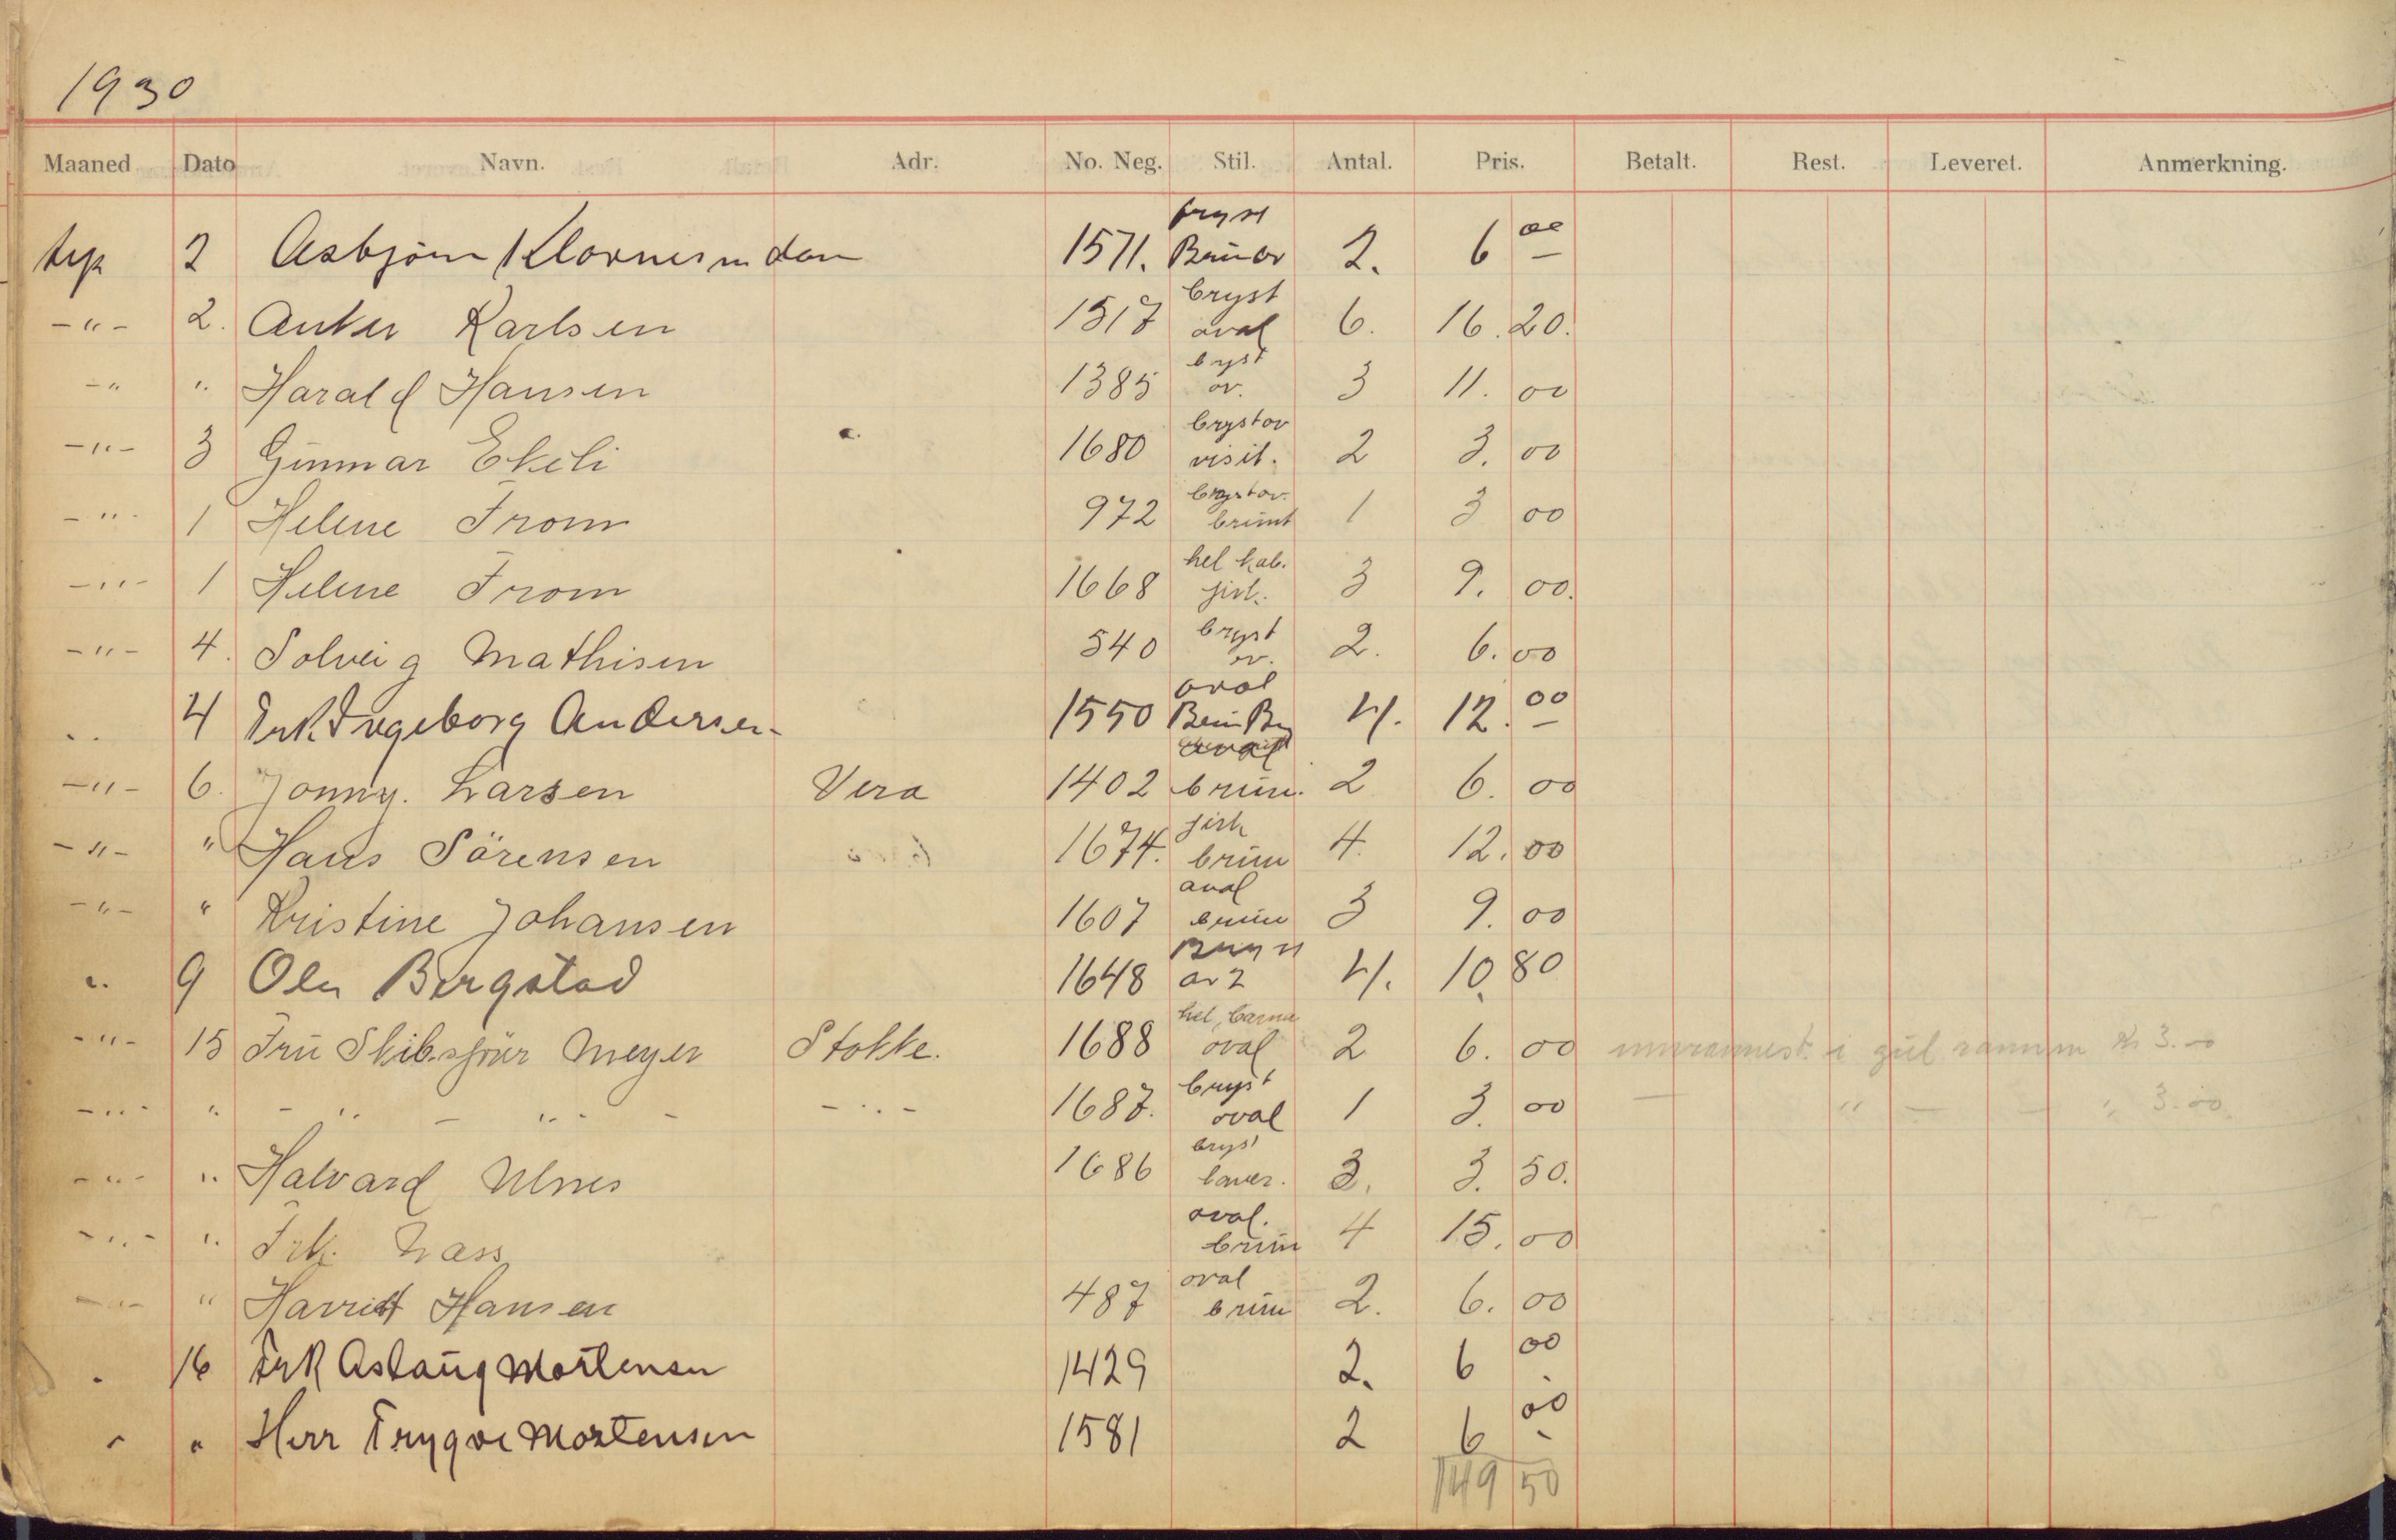 1930
Maaned Dato Navn. Adr. No. Neg. Stil. Antal. Pris. Betalt. Rest. Leveret. Anmerkning.
bryst
2 Asbjørn 1571. Brun ov 2. 6 00
bryst
-"- 2. Anker Karlsen 1517 oval 6. 16.20.
bryst
-" " Harald Hansen 1385 ov. 3 11.00
brystov
-"- 3 Gunnar Ekeli 1680 visit. 2 3.00
brystov.
-"- 1 Helene From 972 brunt 1 3 00
hel kab.
-"- 1 Helene From 1668 3 9.00.
bryst
-"- 4. Solveig Mathisen 540 ov. 2. 6.00
oval
" 4 Frk. Ingeborg Andersen 1550 4. 12.00
-"- 6. Jonny. Larsen Vera 1402 brun. 2 6.00
-"- " Hans Sörensen 1674. brun 4. 12.00
oval
-"- " Kristine Johansen 1607 brun 3 9.00
" 9 Bergstad 1648 ov 2 4. 10.80
hel, barna
-"- 15 Frü Meyer Stokke. 1688 oval 2 6.00 i gul ramm kr 3.00
bryst
-"- " - " - " - -"- 1687. oval 1 3.00 - " - - " 3.00
bryst
-"- " Halvard Ulnes 1686 3. 3.50.
oval.
-"- " Frk. brun 4 15.00
oval
-"- " Harriet Hansen 487 brun 2. 6.00
" 16 Frk Aslaug Mortensen 1429 2. 6 00
" " Herr Trygve Mortensen 1581 2 6 00
149 50